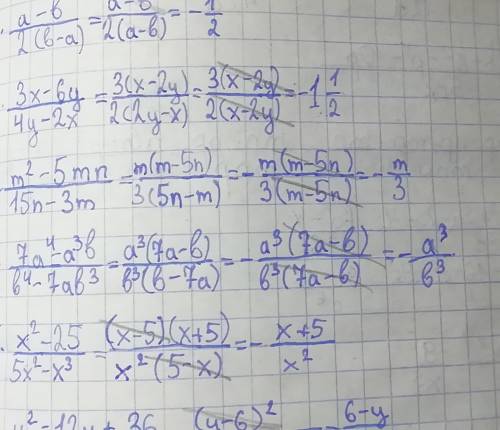 (a-b)/(2(b-a)) = (a-b)/(2(a-b)) = -1/2
(3x-6y)/(4y-2x) = (3(x-2y))/(2(2y-x)) = (3(x-2y))/(2(x-2y)) = -1 1/2
(m²-5mn)/(15n-3m) = (m(m-5n))/(3(5n-m)) = -(m(m-5n))/(3(m-5n)) = -m/3
(7a⁴-a³b)/(b⁴-7ab³) = (a³(7a-b))/(b³(b-7a)) = -(a³(7a-b))/(b³(7a-b)) = -a³/b³
(x²-25)/(5x²-x³) = ((x-5)(x+5))/(x²(5-x)) = -(x+5)/x²
y²-12y+36 (y-6)² 6-y